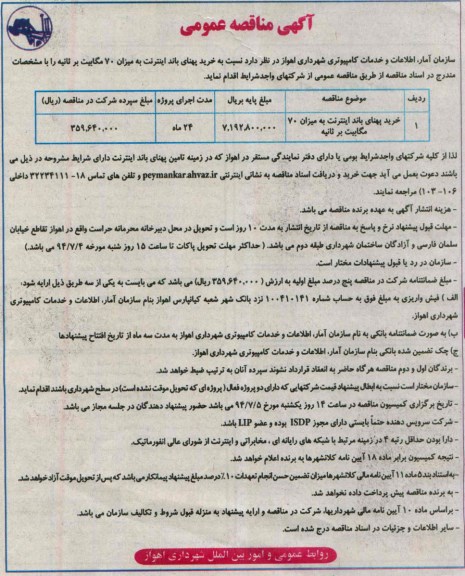 آگهی مناقصه عمومی
سازمان آمار، اطلاعات و خدمات کامپیوتری شهرداری اهواز در نظر دارد نسبت به خرید پهنای باند اینترنت به میزان ۷۰ مگابیت بر ثانیه را با مشخصات
مندرج در اسناد مناقصه از طریق مناقصه عمومی از شرکتهای واجدشرایط اقدام نماید.
ردیف موضوع مناقصه مبلغ پایه بریال مدت اجرای پروژه مبلغ سپرده شرکت در مناقصه (ریال)
۱ خرید پهنای باند اینترنت به میزان ۷۰ مگابیت بر ثانیه ۷,۱۹۲,۸۰۰,۰۰۰ ۲۴ ماه ۳۵۹,۶۴۰,۰۰۰
لذا از کلیه شرکتهای واجدشرایط بومی یا دارای دفتر نمایندگی مستقر در اهواز که در زمینه تامین پهنای باند اینترنت دارای شرایط مشروحه در ذیل می
باشند دعوت بعمل می آید جهت خرید و دریافت اسناد مناقصه به نشانی اینترنتی peymankar.ahvaz.ir و تلفن های تماس ۱۸-۳۲۲۳۴۱۱۱ داخلی
۱۰۶-۱۰۳ مراجعه نمایند.
- هزینه انتشار آگهی به عهده برنده مناقصه می باشد.
- مهلت قبول پیشنهاد نرخ و پاسخ به مناقصه از تاریخ انتشار به مدت ۱۰ روز است و تحویل در محل دبیرخانه محرمانه حراست واقع در اهواز تقاطع خیابان
سلمان فارسی و آزادگان ساختمان شهرداری طبقه دوم می باشد. (حداکثر مهلت تحویل پاکات تا ساعت ۱۵ روز شنبه مورخه ۹۴/۷/۴ می باشد.)
- سازمان در رد یا قبول پیشنهادات مختار است.
- مبلغ ضمانتنامه شرکت در مناقصه پنج درصد مبلغ اولیه به ارزش (۳۵۹,۶۴۰,۰۰۰ ریال) می باشد که می بایست به یکی از سه طریق ذیل ارایه شود:
الف) فیش واریزی به مبلغ فوق به حساب شماره ۱۰۰۴۱۰۱۴۱ نزد بانک شهر شعبه کیانپارس اهواز بنام سازمان آمار، اطلاعات و خدمات کامپیوتری
شهرداری اهواز.
ب) به صورت ضمانتنامه بانکی به نام سازمان آمار، اطلاعات و خدمات کامپیوتری شهرداری اهواز به مدت سه ماه از تاریخ افتتاح پیشنهادها
ج) چک تضمین شده بانکی بنام سازمان آمار، اطلاعات و خدمات کامپیوتری شهرداری اهواز.
- برندگان اول و دوم مناقصه هرگاه حاضر به انعقاد قرارداد نشوند سپرده آنان به ترتیب ضبط خواهد شد.
- سازمان مختار است نسبت به ابطال پیشنهاد قیمت شرکتهایی که دارای دو پروژه فعال (پروژه ای که تحویل موقت نشده است) در سطح شهرداری باشند اقدام نماید.
- تاریخ برگزاری کمیسیون مناقصه در ساعت ۱۴ روز یکشنبه مورخ ۹۴/۷/۵ می باشد حضور پیشنهاد دهندگان در جلسه مجاز می باشد.
- شرکت سرویس دهنده حتماً بایستی دارای مجوز ISDP بوده و عضو LIP باشد.
- دارا بودن حداقل رتبه ۴ در زمینه مرتبط با شبکه های رایانه ای ، مخابراتی و اینترنت از شورای عالی انفورماتیک.
- نتیجه کمیسیون برابر ماده ۱۸ آیین نامه کلانشهرها به برنده اعلام خواهد شد.
- به استناد بند ۵ ماده ۱۱ آیین نامه مالی کلانشهرها میزان تضمین حسن انجام تعهدات ۱۰٪ درصد مبلغ پیشنهاد پیمانکار می باشد که پس از تحویل موقت آزاد خواهد شد.
- به برنده مناقصه پیش پرداخت داده نخواهد شد.
- براساس ماده ۱۰ آیین نامه مالی شهرداریها، شرکت در مناقصه و ارایه پیشنهاد به منزله قبول شروط و تکالیف سازمان می باشد.
- سایر اطلاعات و جزئیات در اسناد مناقصه درج شده است.
روابط عمومی و امور بین الملل شهرداری اهواز